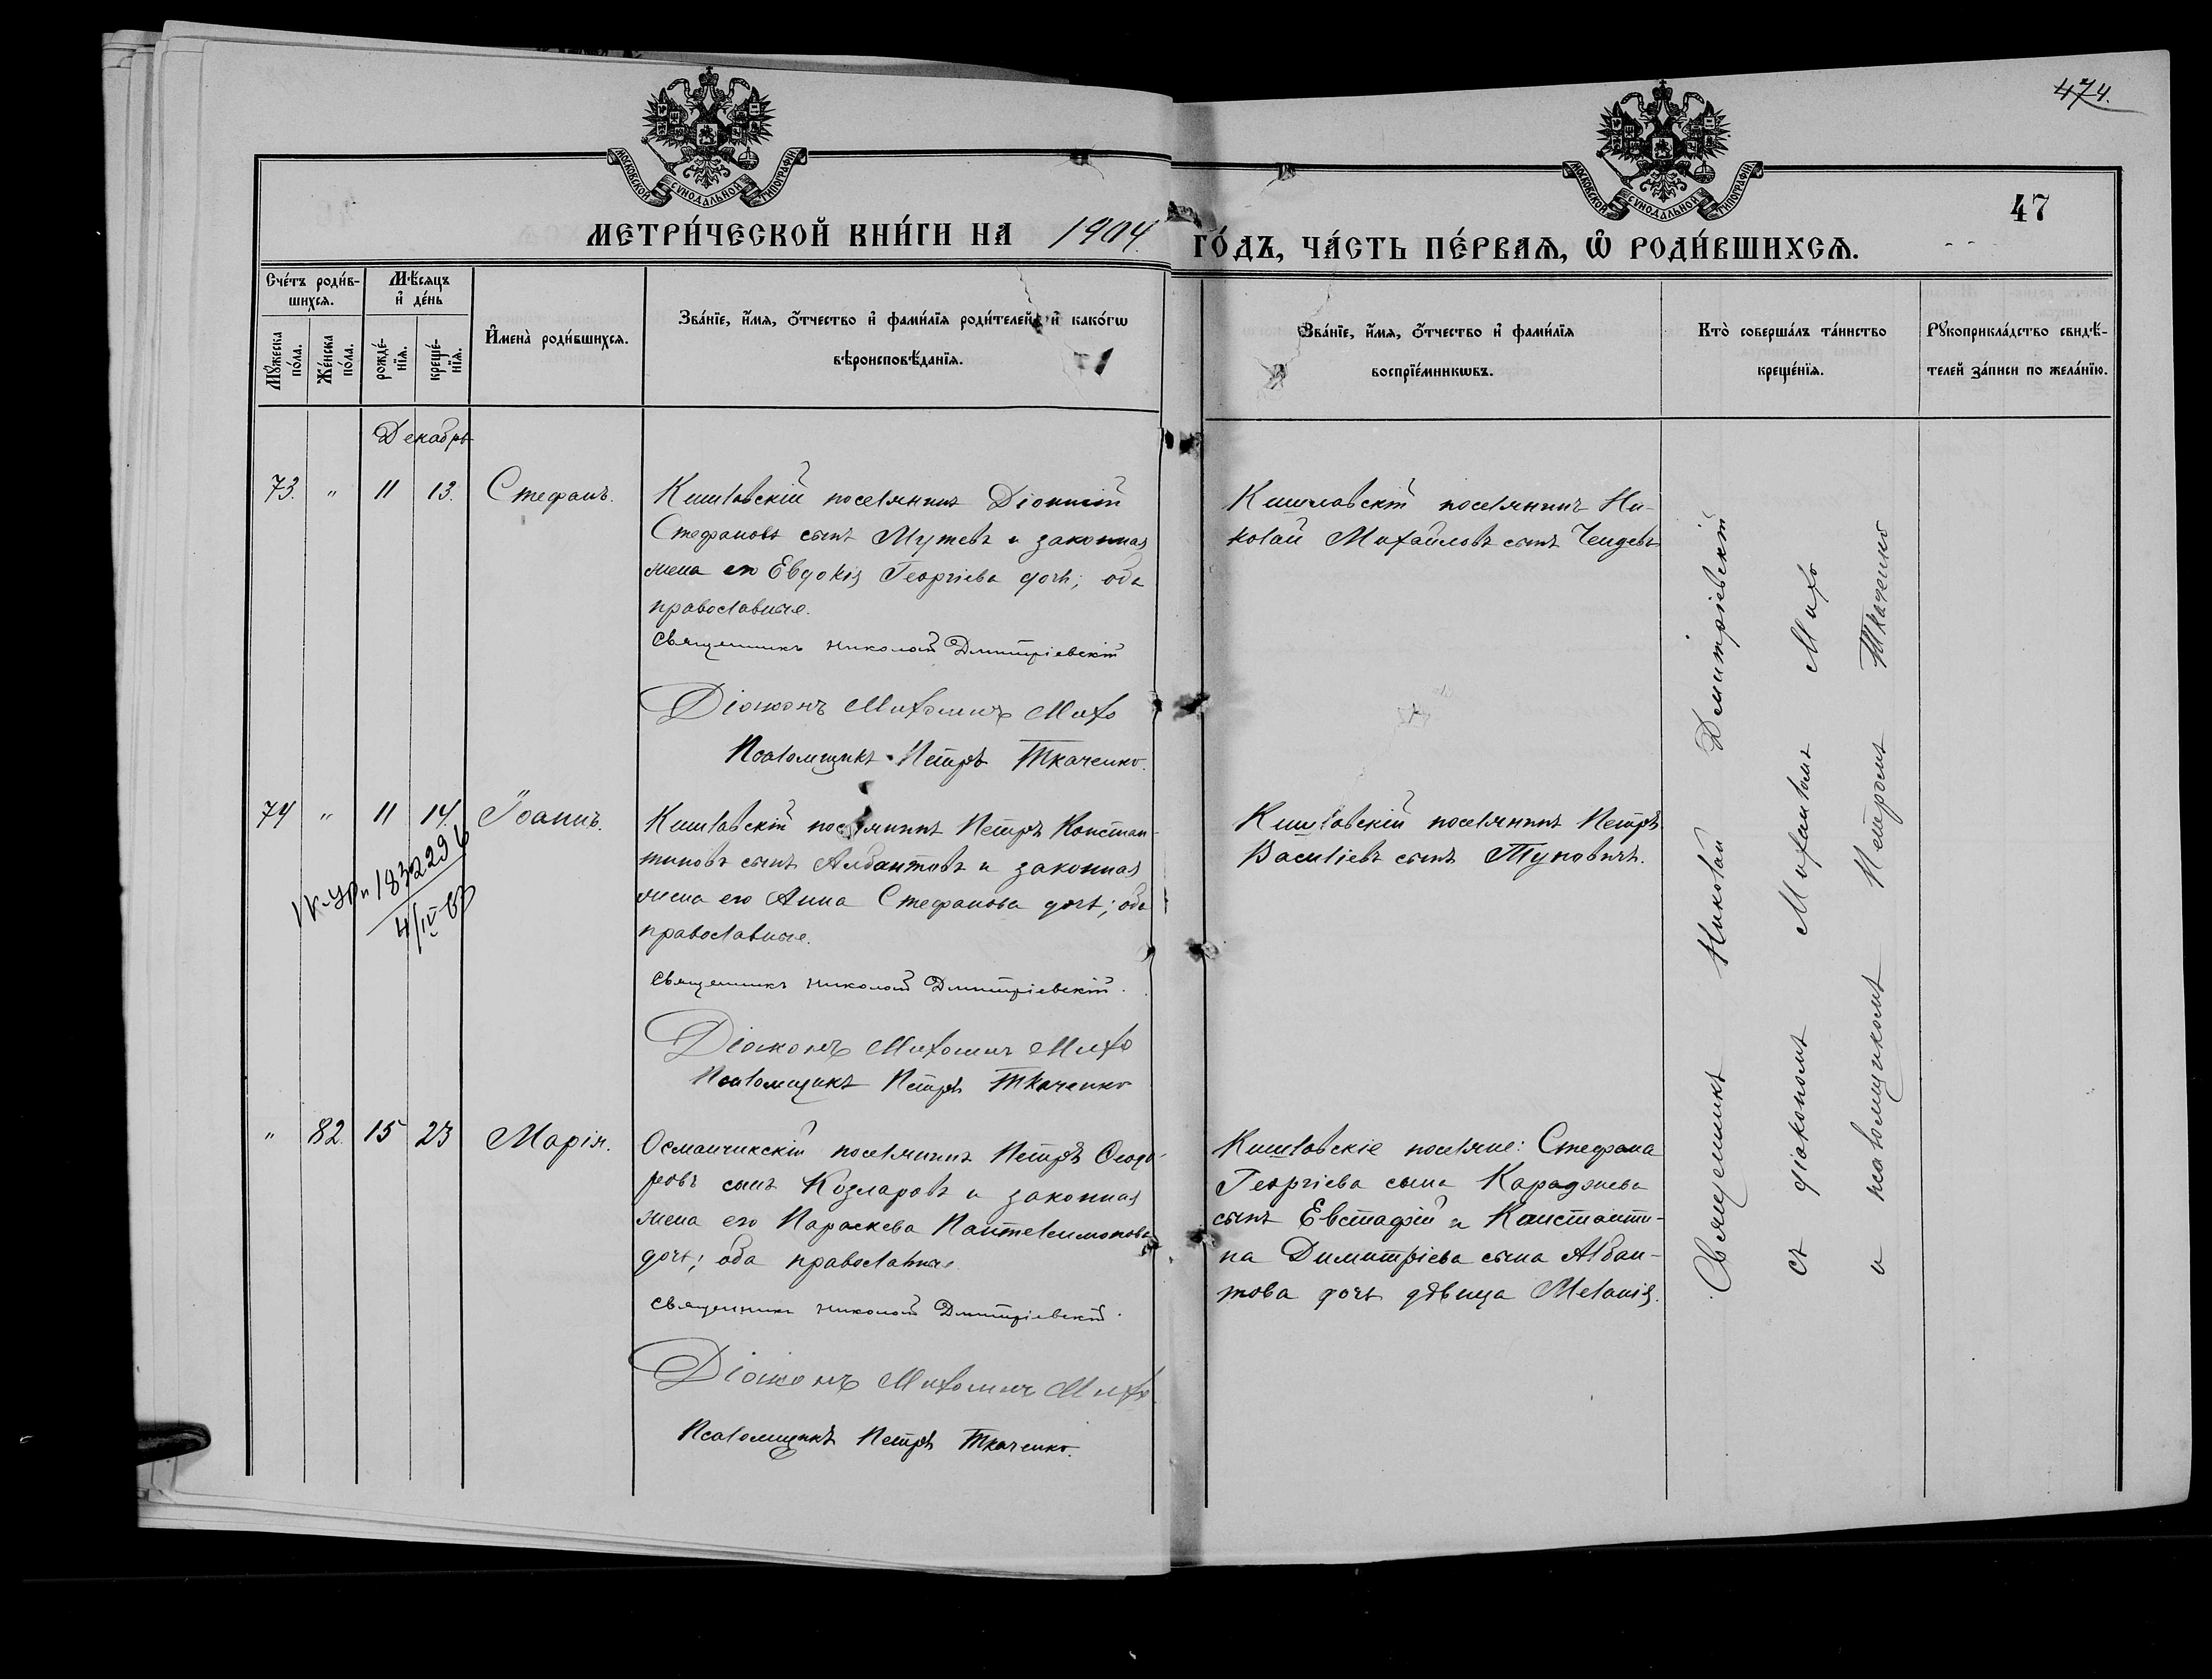 474.
47
МОСКОВСКОЙ СѴНОДАЛЬНОЙ ТИПОГРАФІИ
МОСКОВСКОЙ СѴНОДАЛЬНОЙ ТИПОГРАФІИ
МЕТРИ́ЧЕСКОЙ КНИ́ГИ НА 1904. ГО́ДЪ, ЧА́СТЬ ПЕ́РВАѦ, Ѽ РОДИ́ВШИХСѦ.
Сче́тъ роди́в-
шихсѧ.
Мꙋ́жеска
по́ла.
Же́нска
по́ла.
Мѣ́сяцъ
и҆ де́нь
рожде́-
нїѧ.
креще́-
нїѧ.
И҆мена̀ роди́вшихсѧ.
Зва́нїе, и҆́мѧ, ѻ҆́тчество и҆ фами́лїѧ роди́телей, и҆ како́гѡ
вѣроисповѣ́данїѧ.
Зва́нїе, и҆́мѧ, ѻ҆́тчество и҆ фами́лїѧ
воспрїе́мникѡвъ.
Кто̀ соверша́лъ та́инство
креще́нїѧ.
Рꙋкоприкла́дство свидѣ́-
телей за́писи по жела́нїю.
Декабрь
73. " 11 13. Стефанъ.
Кишловскій поселянинъ Діонисій
Стефановъ сынъ Мутевъ и законная
жена его Евдокія Георгіева дочь; оба
православные.
Священникъ Николай Дмитріевскій
Діаконъ Михаилъ Михо
Псаломщикъ Петръ Ткаченко.
Кишловскій поселянинъ Ни-
колай Михайловъ сынъ Чендевъ
74 " 11 14. Іоаннъ.
Кишловскій поселянинъ Петръ Констан-
тиновъ сынъ Албантовъ и законная
жена его Анна Стефанова дочь; оба
православные.
Священникъ Николай Дмитріевскій.
Діаконъ Михаилъ Михо
Псаломщикъ Петръ Ткаченко
Кишловскій поселянинъ Петръ
Василіевъ сынъ
4/IV
" 82. 15 23 Марія.
Османчикскій поселянинъ Петръ Ѳеодо-
ровъ сынъ Козларовъ и законная
жена его Параскева Пантелеимонова
дочь; оба православные
Священникъ Николай Дмитріевскій.
Діаконъ Михаилъ Михо
Псаломщикъ Петръ Ткаченко.
Кишловскіе поселяне: Стефана
Георгіева сына Караджева
сынъ Евстафій и Константи-
на Димитріева сына Албан-
това дочь дѣвица Меланія.
Священникъ Николай Дмитріевскій
съ діакономъ Михаиломъ Михо
и псаломщикомъ Петромъ Ткаченко